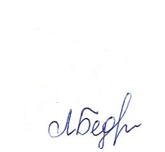 ЛБедр